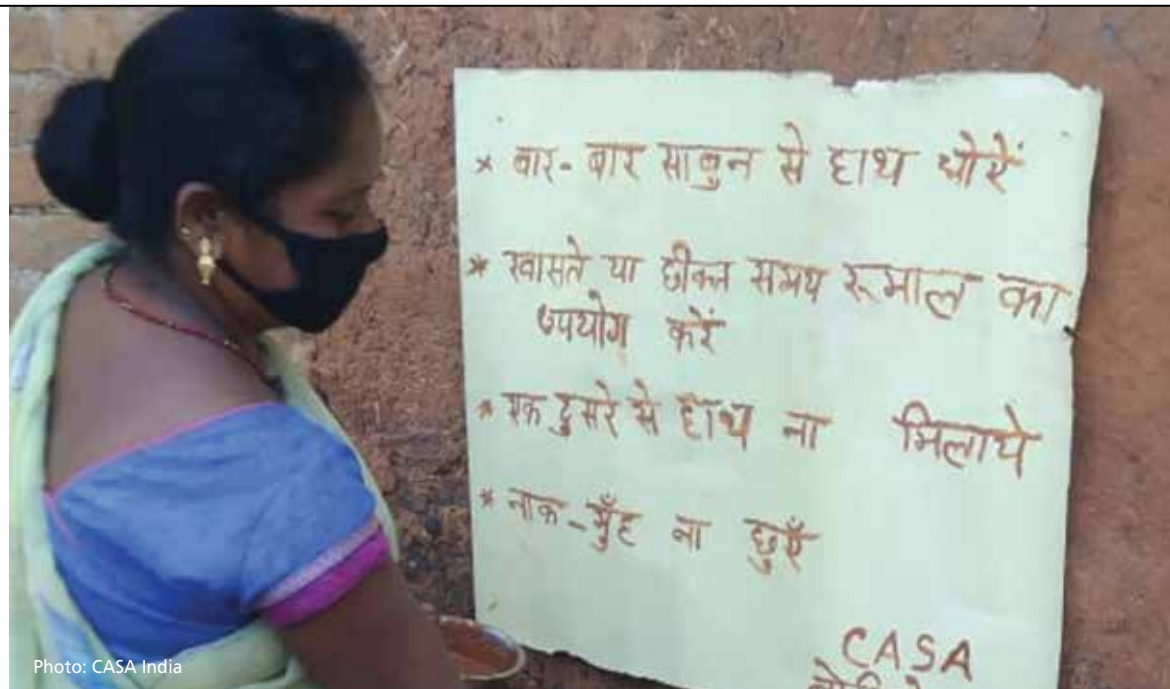 * बार-बार साबुन से हाथ धोऐं
* खासते या छीकत समय रूमाल का
उपयोग करें
* एक दुसरे से हाथ ना मिलाये
* नाक-मुँह ना छुएँ
CASA
Photo: CASA India